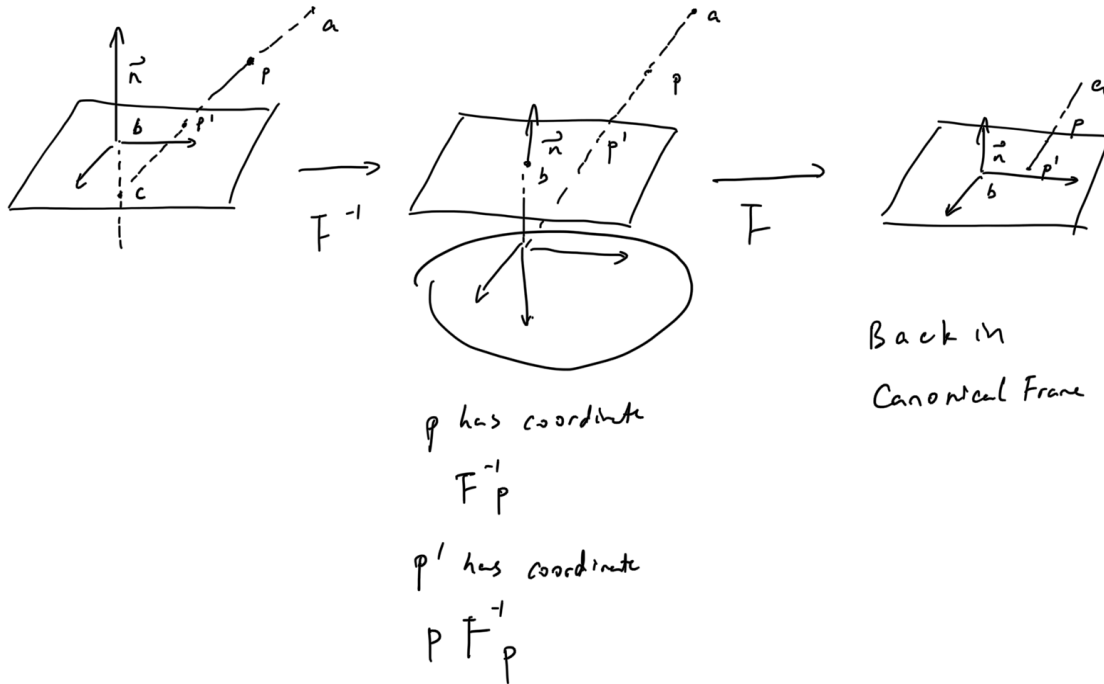 a
n⃗
p
b
p'
c
F⁻¹
a
p
n⃗
p'
b
F
a
p
n⃗
p'
b
Back in
Canonical Frame
p has coordinate
F⁻¹p
p' has coordinate
P F⁻¹p